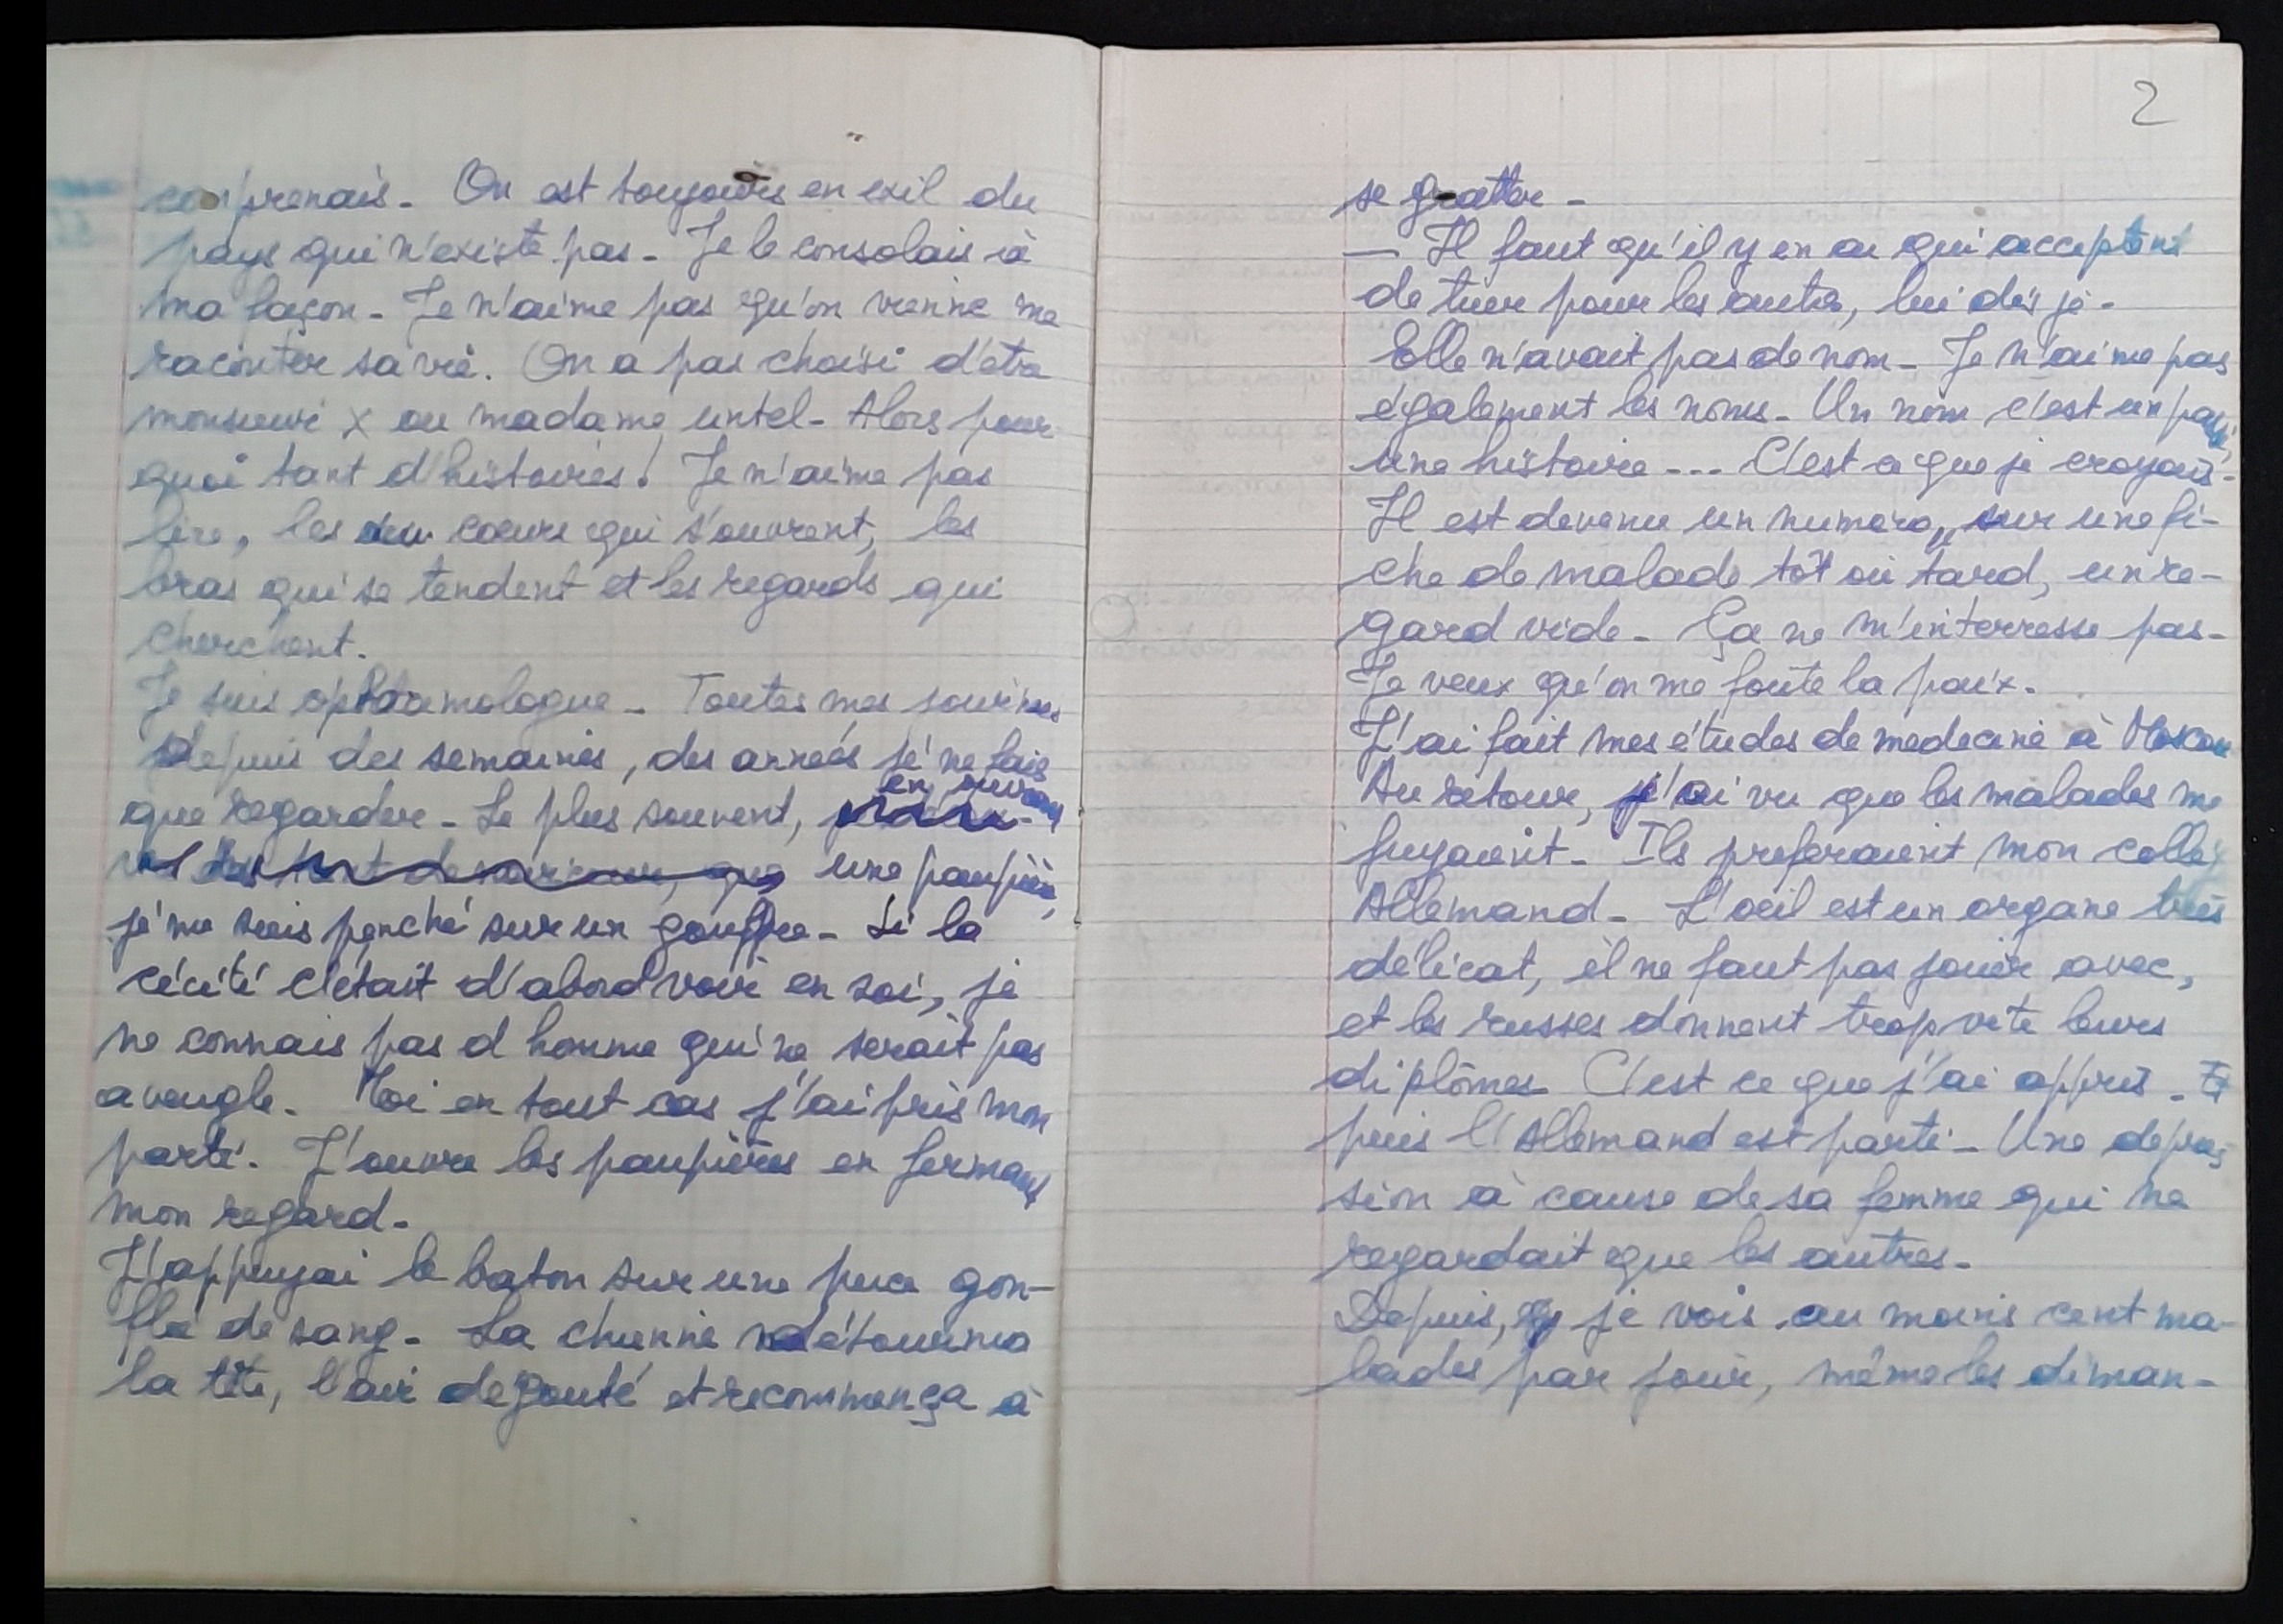 comprenais. On est toujours en exil du
pays qui n'existe pas. Je le consolais à
ma façon. Je n'aime pas qu'on vienne me
raconter sa vie. On a pas choisi d'être
monsieur x ou madame untel. Alors pour
quoi tant d'histoires! Je n'aime pas
lire, les coeurs qui s'ouvrent, les
bras qui se tendent et les regards qui
cherchent.
Je suis ophtamologue. Toutes mes
Depuis des semaines, des années je ne fais
que regarder. Le plus souvent, en ouvrant
une paupière,
je me suis penché sur un gouffre. Si la
cécité c'était d'abord voir en soi, je
ne connais pas d'homme qui ne serait pas
aveugle. Moi en tout cas j'ai pris mon
parti. J'ouvre les paupières en fermant
mon regard.
J'appuyai le baton sur une puce gon-
flé de sang. La chienne détourna
la tête, l'air degouté et recommença à
2
se gratter.
— Il faut qu'il y en ai qui acceptent
de tuer pour les autres, lui dis je.
Elle n'avait pas de nom. Je n'aime pas
également les noms. Un nom c'est un passé,
une histoire... C'est ce que je croyais.
Il est devenu un numéro, sur une fi-
che de malade tôt ou tard, un re-
gard vide. Ça ne m'interresse pas.
Je veux qu'on me foute la paix.
J'ai fait mes études de medecine à Moscou
Au retour, j'ai vu que les malades me
fuyaient. Ils preferaient mon collèg
Allemand. L'oeil est un organe très
délicat, il ne faut pas jouer avec,
et les russes donnent trop vite leurs
diplômes. C'est ce que j'ai appris. Et
puis l'Allemand est parti. Une depres-
sion à cause de sa femme qui ne
regardait que les autres.
Depuis, je vois au moins cent ma-
lades par jour, même les diman-